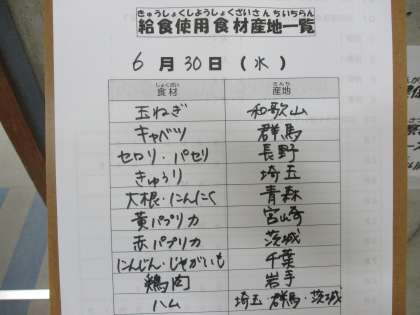 きゅうしょくしようしょくざいさんちいちらん
給食使用食材産地一覧
6月30日(水)
しょくざい さんち
食材 産地
玉ねぎ 和歌山
キャベツ 群馬
セロリ・パセリ 長野
きゅうり 埼玉
大根・にんにく 青森
黄パプリカ 宮崎
赤パプリカ 茨城
にんじん・じゃがいも 千葉
鶏肉 岩手
ハム 埼玉・群馬・茨城